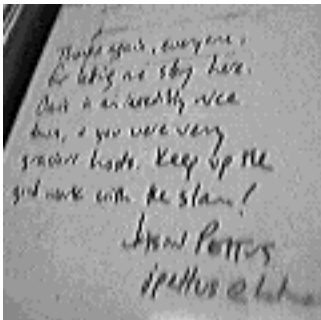 Thanks again, everyone,
for letting me stay here.
This is an incredibly nice
town, & you were very
gracious hosts. Keep up the
good work with the slam!
Jason Pettus